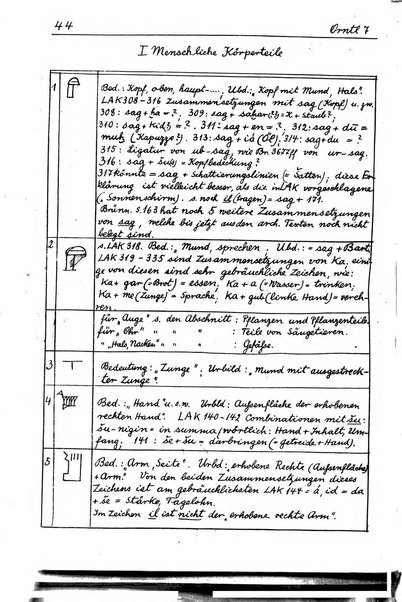 44
Orntl 7
I Menschliche Körperteile
1
Bed.: Kopf, oben, haupt-...., Ubd.: „Kopf mit Mund, Hals".
LAK 308-316 Zusammensetzungen mit sag (Kopf) u. zw.
308: sag + ha = ?, 309: sag + sahar(?) + x = Staub?,
310: sag + Kid? = ?. 311: sag + en = ?. 312: sag + du =
muh (Kapuzze?). 313: sag + id (Öl), 314: sag + du = ?
315: Ligatur von ub-sag, wie Br. 3677ff von ur-sag.
316: sag + šu(s) = Kopfbedeckung?
317 könnte = sag + Schattierungslinien (= Šatten), diese Er-
klärung ist vielleicht besser, als die in LAK vorgeschlagene
(„Sonnenschirm). s. noch il (tragen) = sag + 171.
Brünn. S. 163 hat noch 5 weitere Zusammensetzungen
von sag, welche bis jetzt aus den arch. Texten noch nicht
belegt sind.
2
s. LAK 318. Bed.: „Mund, sprechen". Ubd.: = sag + Bart.
LAK 319-335 sind Zusammensetzungen von Ka, eini-
ge von diesen sind sehr gebräuchliche Zeichen, wie:
Ka + gar (= Brot) = essen, Ka + a (= Wasser) = trinken,
Ka + me (Zunge) = Sprache, Ka + gub (linke Hand) = vereh-
ren.
für „Auge" s. den Abschnitt: Pflanzen und Pflanzenteile.
für „Ohr" " " " : Teile von Säugetieren.
" „Hals, Nacken" " " " : Gefäße.
3
Bedeutung: „Zunge". Urbild: „Mund mit ausgestreck-
ter Zunge".
4
Bed.: „Hand" u.s.w. Urbld: Außenfläche der erhobenen
rechten Hand". LAK 140-142 Combinationen mit šu:
šu-nigin = in summa, wörtlich: Hand + Inhalt, Um-
fang, 141: še + šu = darbringen (= Getreide + Hand).
5
Bed.: „Arm, Seite". Urbd: erhobene Rechte (Außenfläche)
+ Arm". Von den beiden Zusammensetzungen dieses
Zeichens ist am gebräuchlichsten LAK 144 = á, id = da
+ še = Stärke, Tagelohn.
Im Zeichen il ist nicht der „erhobene rechte Arm".